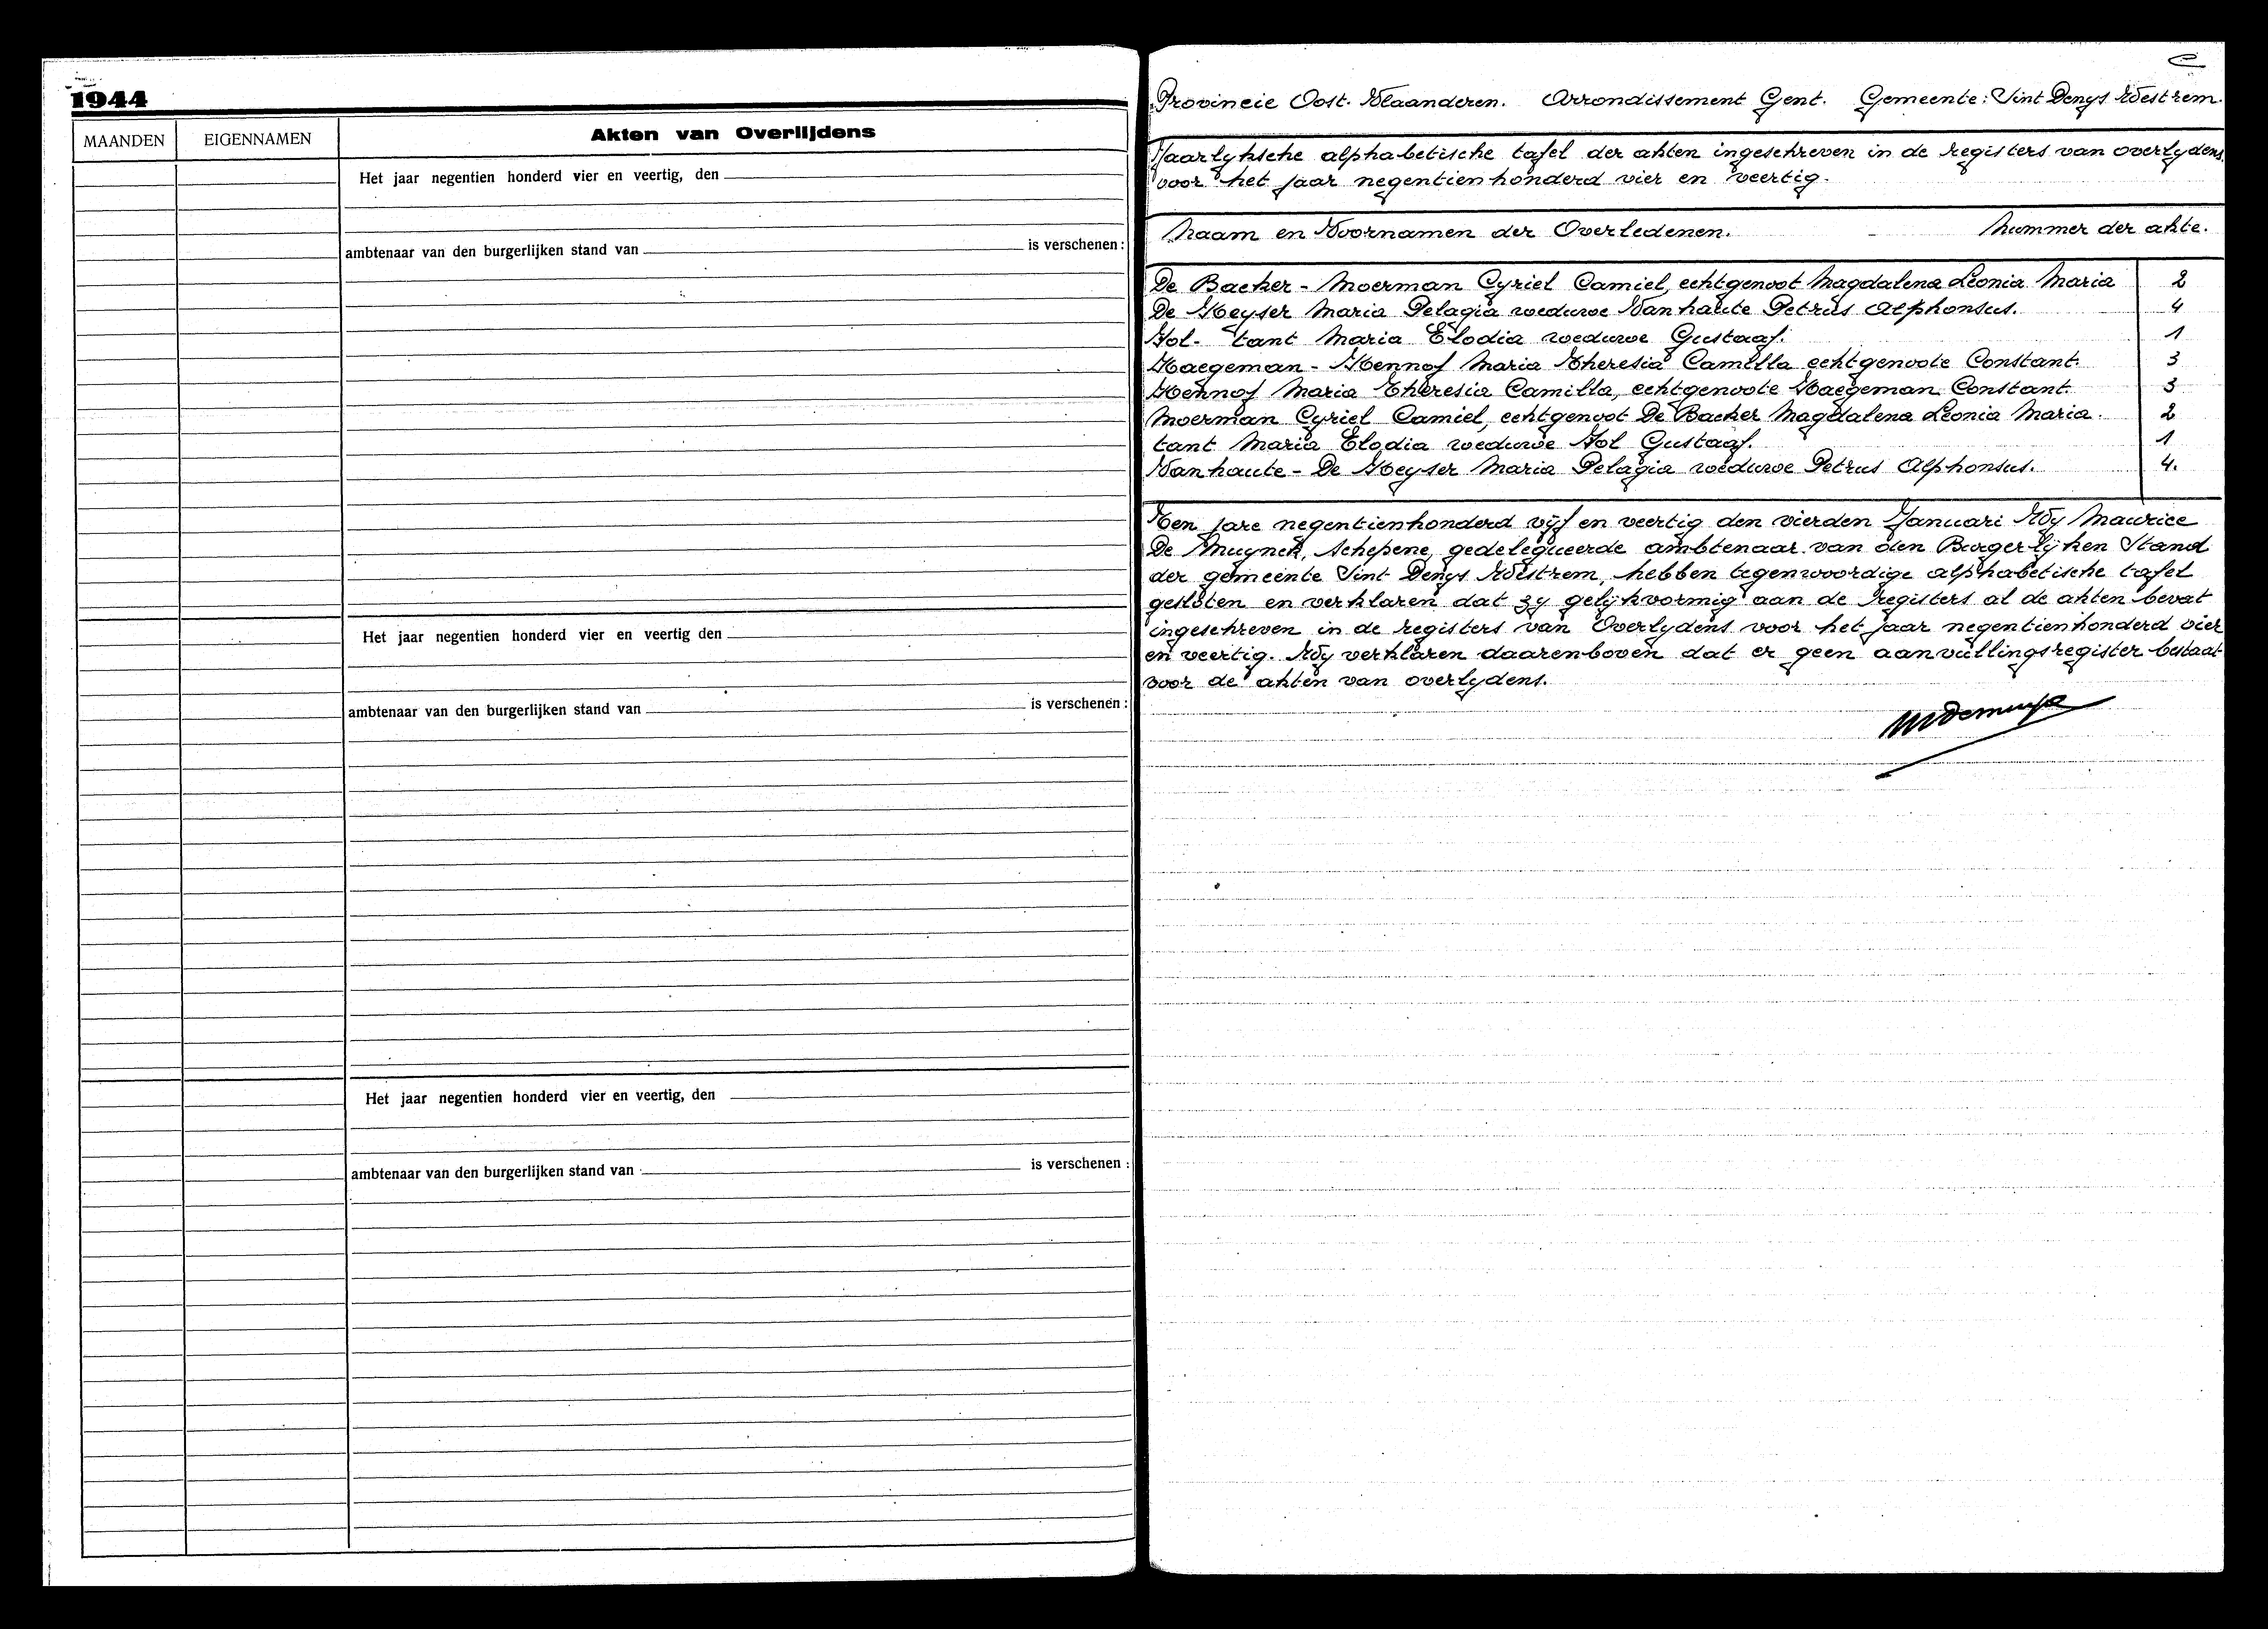 1944
MAANDEN EIGENNAMEN Akten van Overlijdens
Het jaar negentien honderd vier en veertig, den
ambtenaar van den burgerlijken stand van is verschenen :
Het jaar negentien honderd vier en veertig den
ambtenaar van den burgerlijken stand van is verschenen :
Het jaar negentien honderd vier en veertig, den
ambtenaar van den burgerlijken stand van is verschenen :
Provincie Oost-Vlaanderen. Arrondissement Gent. Gemeente: Sint Denys Westrem.
Jaarlyksche alphabetische tafel der akten ingeschreven in de registers van overlydens,
voor het jaar negentienhonderd vier en veertig.
Naam en Voornamen der Overledenen. Nummer der akte.
De Backer - Moerman Cyriel Camiel, echtgenoot Magdalena Leonia Maria 2
De Keyser Maria Pelagia weduwe Vanhaute Petrus Alphonsus. 4
Hol- tant Maria Elodia weduwe Gustaaf. 1
Haegeman - Hennof Maria Theresia Camilla echtgenoote Constant. 3
Hennof Maria Theresia Camilla, echtgenoote Haegeman Constant. 3
Moerman Cyriel Camiel, echtgenoot De Backer Magdalena Leonia Maria. 2
tant Maria Elodia weduwe Hol Gustaaf. 1
Vanhaute - De Keyser Maria Pelagia weduwe Petrus Alphonsus. 4.
Ten jare negentienhonderd vijf en veertig den vierden Januari Wy Maurice
De Muynck, Schepene, gedelegueerde ambtenaar van den Burgerlijken Stand
der gemeente Sint Denys Westrem, hebben tegenwoordige alphabetische tafel
gesloten en verklaren dat zy gelijkvormig aan de registers al de akten bevat
ingeschreven in de registers van Overlydens voor het jaar negentienhonderd vier
en veertig. Wy verklaren daarenboven dat er geen aanvullingsregister bestaat
voor de akten van overlydens.